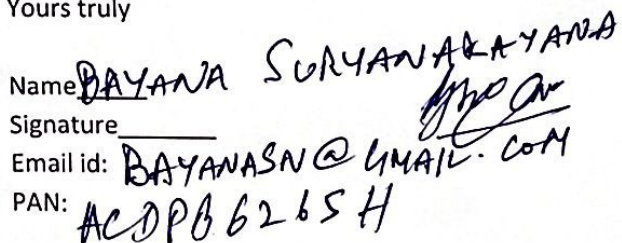 Yours truly
Name BAYANA SURYANARAYANA
Signature
Email id: BAYANASN@GMAIL.COM
PAN: ACDPB6265H